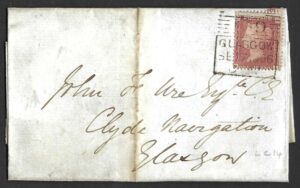 GLASGOW
SE
John F Ure Esqre C.E
Clyde Navigation
Glasgow